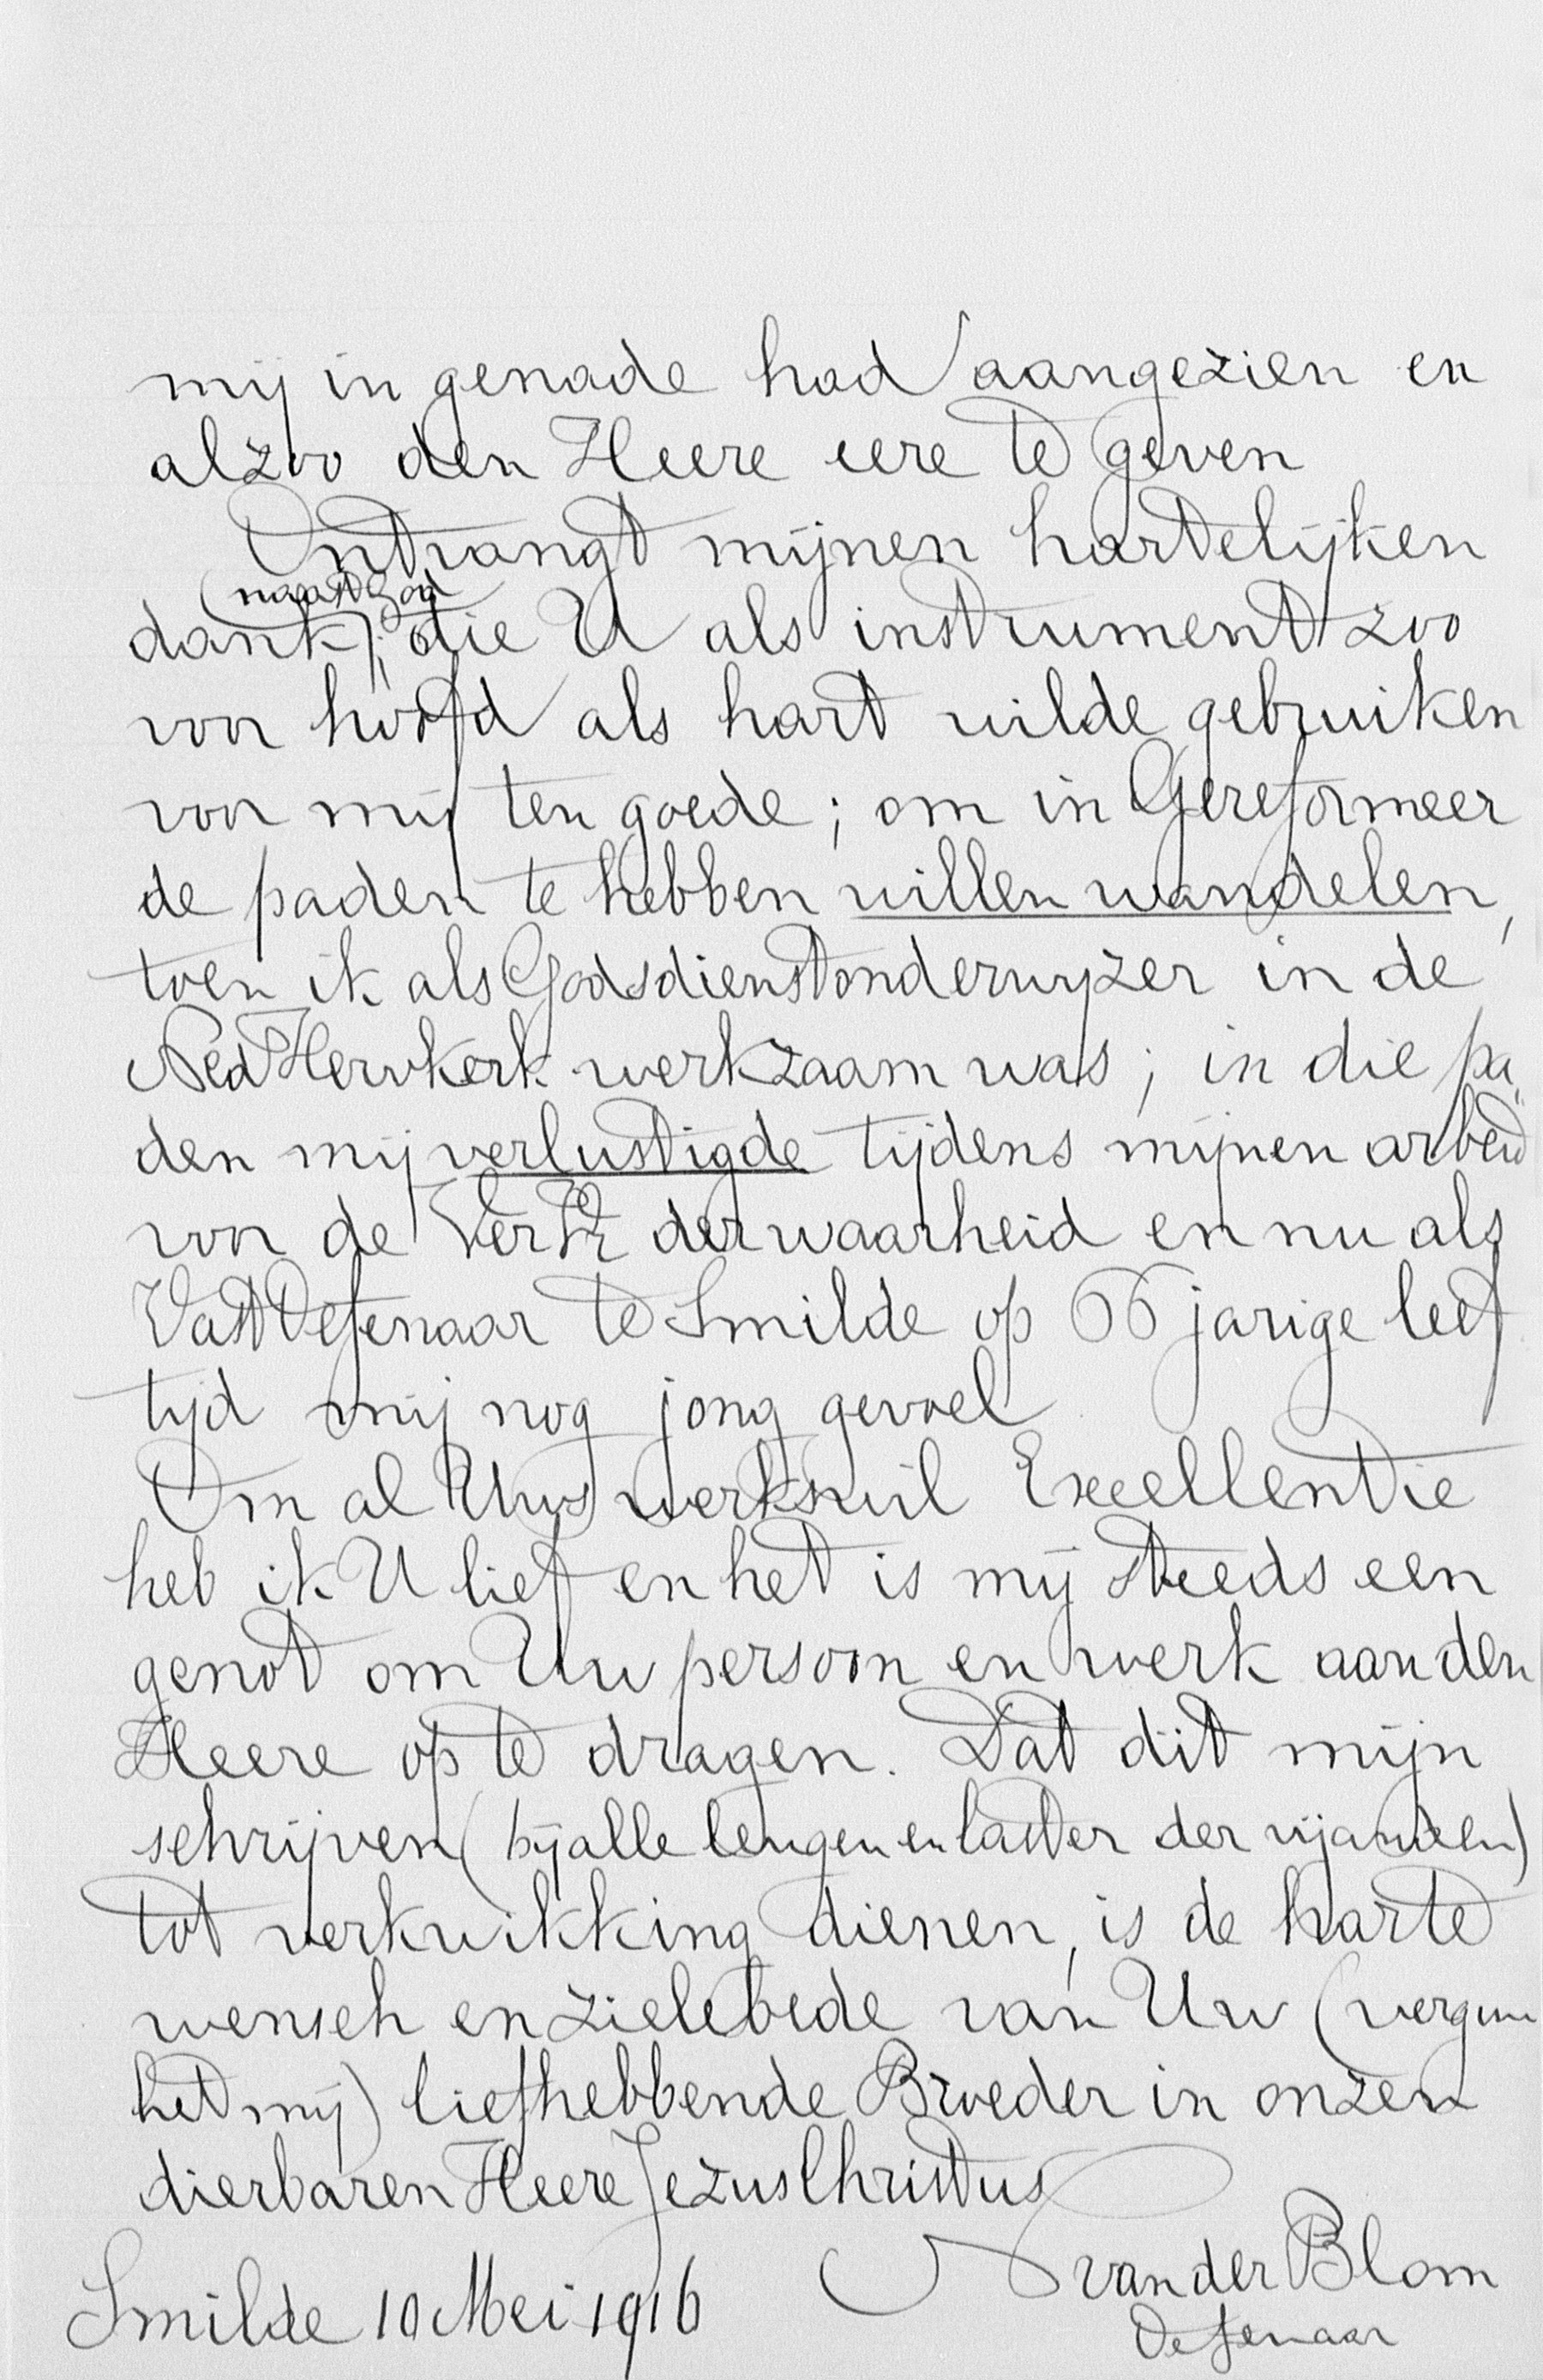 mij in genade had aangezien en
alzoo den Heere eere te geven
Ontvangt mijnen hartelijken
(naast God
dank); die U als instrument zoo
voor hoofd als hart wilde gebruiken
voor mij ten goede; om in Gereformeer
de paden te hebben willen wandelen,
toen ik als Godsdienstonderwyzer in de
Ned Hervkerk werkzaam was; in die pa„
den mij verlustigde tijdens mijnen arbeid
voor de der waarheid en nu als
Vast Oefenaar te Smilde op 66 jarige leef
tijd mij nog jong gevoel
Om al Uws werkswil Excellentie
heb ik U lief en het is mij steeds een
genot om Uw persoon en werk aan den
Heere op te dragen. Dat dit mijn
schrijven (bij alle leugen en laster der vijanden)
tot verkwikking dienen, is de harte
wensch en zielebede van Uw (vergun
het mij) liefhebbende Broeder in onzen
dierbaren Heere Jezus Christus
van der Blom
Smilde 10 Mei 1916
Oefenaar